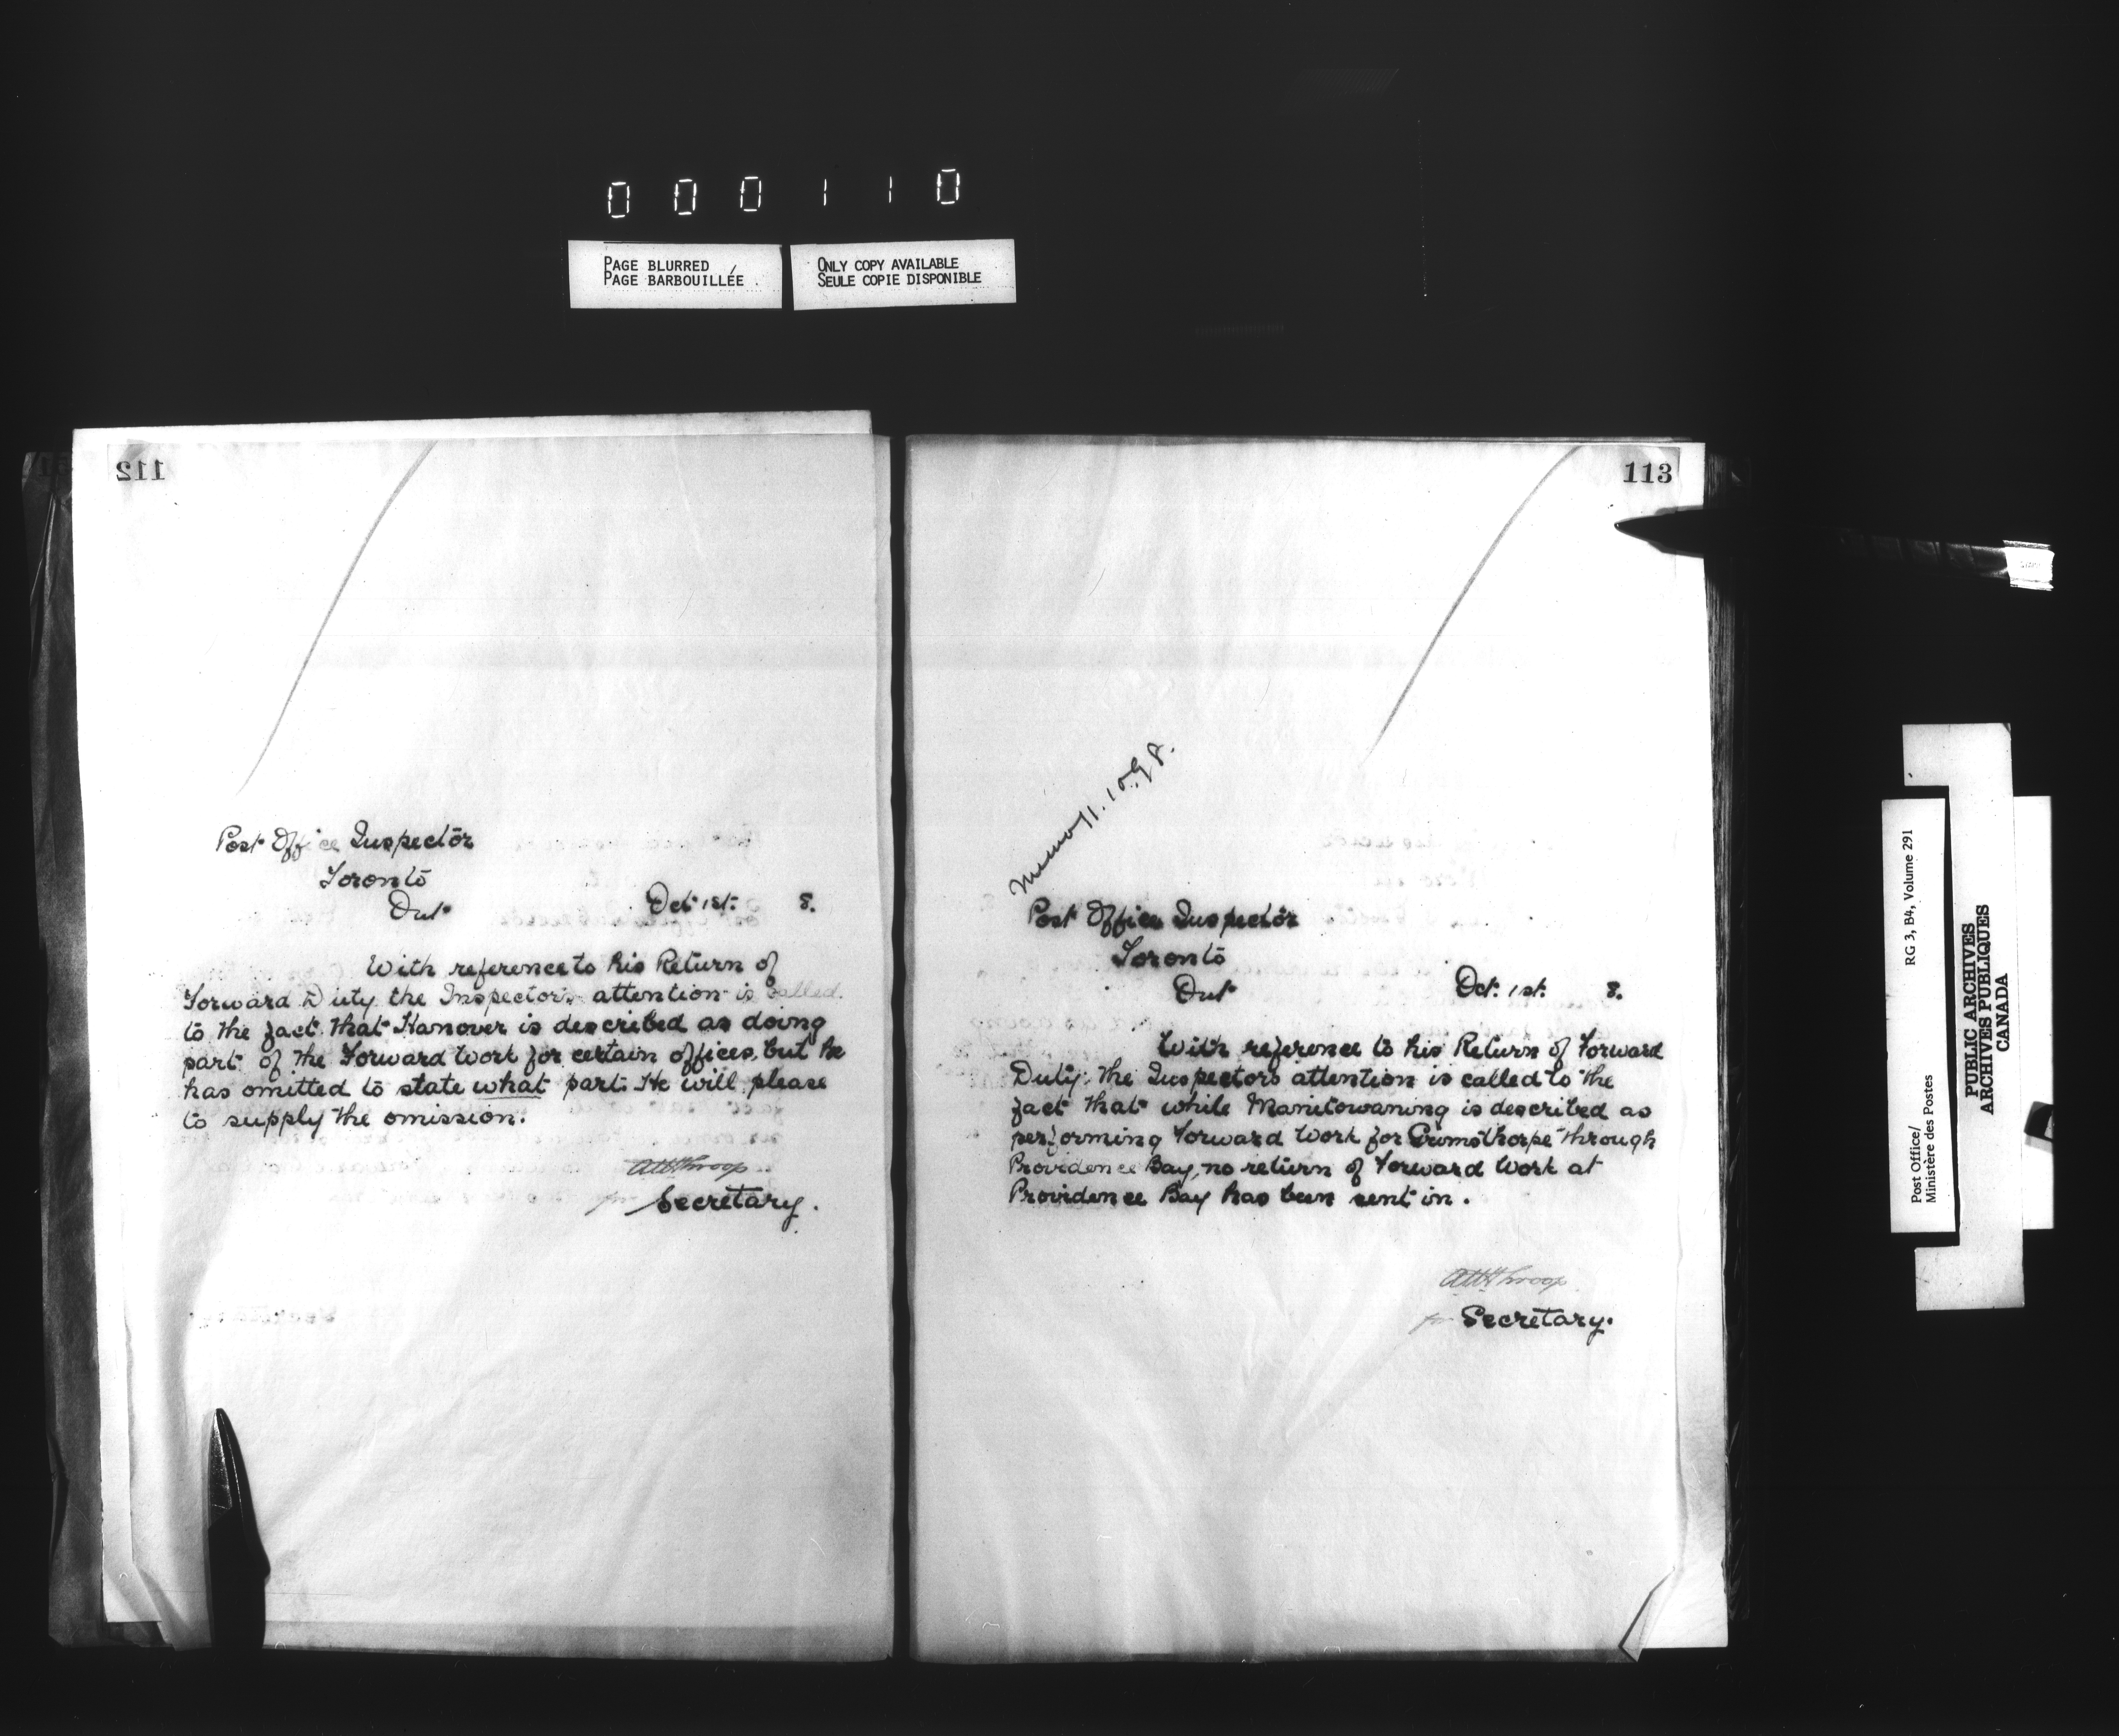 000110
PAGE BLURRED
PAGE BARBOUILLÉE
ONLY COPY AVAILABLE
SEULE COPIE DISPONIBLE
112
Post Office Inspector
Toronto
Ont
Oct 1st. 8.
With reference to his Return of
Forward Duty the Inspector's attention is called
to the fact that Hanover is described as doing
part of the Forward Work for certain offices, but he
has omitted to state what part. He will please
to supply the omission.
Throop
for Secretary.
113
Memo 11.10.98.
Post Office Inspector
Toronto
Ont
Oct. 1st. 8.
With reference to his Return of Forward
Duty, the Inspectors attention is called to the
fact that while Manitowaning is described as
performing Forward Work for Grimsthorpe through
Providence Bay, no return of Forward Work at
Providence Bay has been sent in.
Throop
for Secretary.
Post Office/
Ministère des Postes
RG 3, B4, Volume 291
PUBLIC ARCHIVES
ARCHIVES PUBLIQUES
CANADA